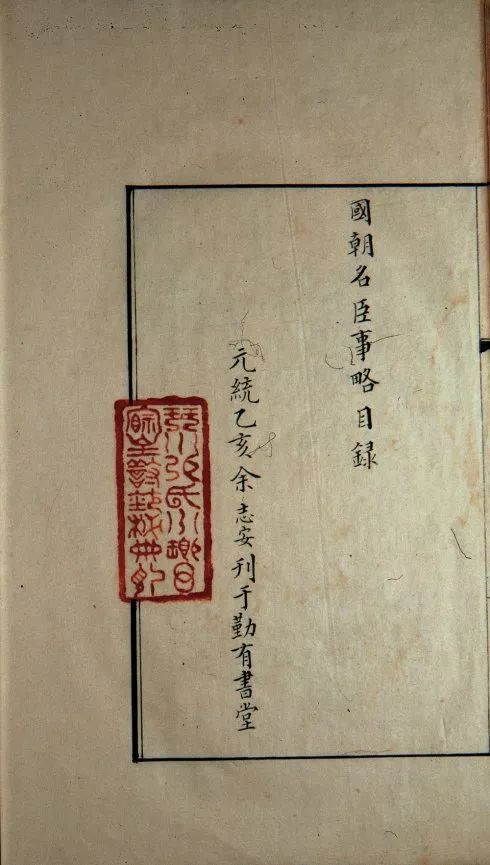 國朝名臣事略目録
元統乙亥余志安刊于勤有書堂
琴川張氏小